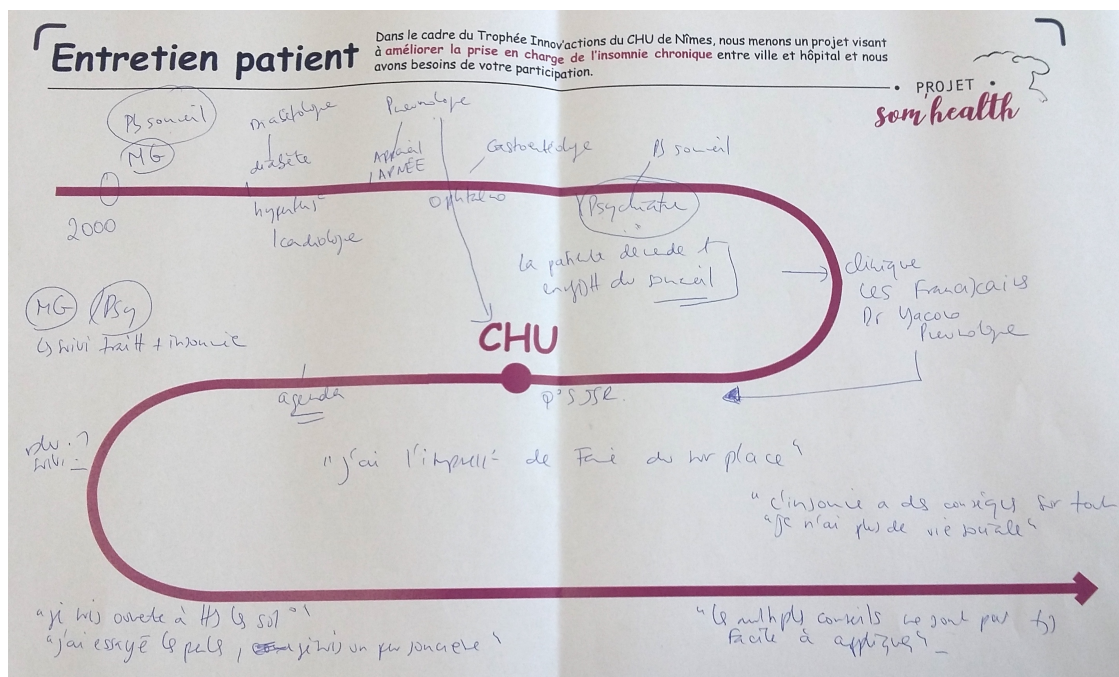 Entretien patient
Dans le cadre du Trophée Innov'actions du CHU de Nîmes, nous menons un projet visant
à améliorer la prise en charge de l'insomnie chronique entre ville et hôpital et nous
avons besoins de votre participation.
PROJET
som'health
Pb sommeil
MG
2000
Diabétologue
diabète
cardiologue
Pneumologue
Appareil
APNÉE
Ophtalmo
Psychiatre
La patiente décide
du sommeil
clinique
Les Franciscains
Dr Yacoub
Pneumologue
MG Psy
↳ suivi Traitt + insomnie
CHU
agenda
rdv ?
suivi
"j'ai l'impress° de Faire du sur place"
"L'insomnie a des conséqces sur tout"
"je n'ai plus de vie sociale"
"je suis ouverte à tts les sol°"
"j'ai essayé les pulls, je suis un peu sorcière"
"les multiples conseils ne sont pas tjs
facile à appliquer"